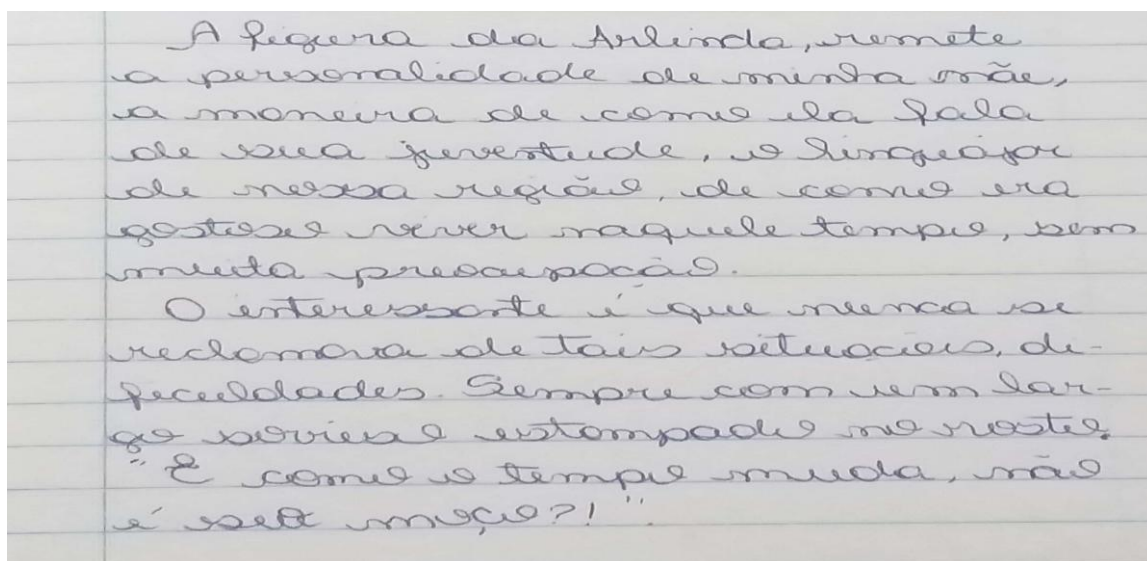 A figura da Arlinda, remete
a personalidade de minha mãe,
a maneira de como ela fala
de sua juventude, o linguajar
de nossa região, de como era
gostoso viver naquele tempo, sem
muita preocupação.
O interessante é que nunca se
reclamava de tais situações, di-
ficuldades. Sempre com um lar-
go sorriso estampado no rosto.
"E como o tempo muda, não
é seu moço?!".